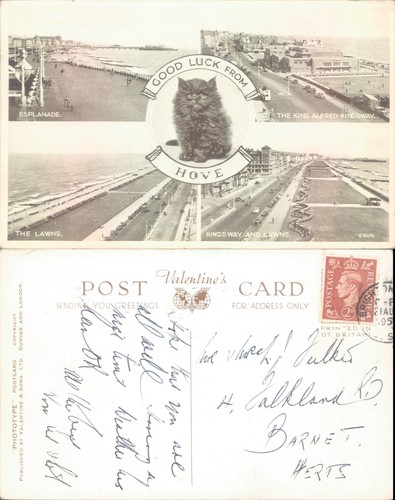 GOOD LUCK FROM
HOVE
ESPLANADE.
THE KING ALFRED KINGSWAY.
THE LAWNS.
KINGSWAY AND LAWNS.
POST Valentine's CARD
SENDING YOU GREETINGS! FOR ADDRESS ONLY
"PHOTOTYPE" POSTCARD COPYRIGHT.
PUBLISHED BY VALENTINE & SONS, LTD. DUNDEE AND LONDON.
PRINTED IN
GT. BRITAIN
POSTAGE
REVENUE
Hope that you are
all well. Having a
nice time. Weather has
Tucker
4, Falkland Rd
BARNET.
HERTS